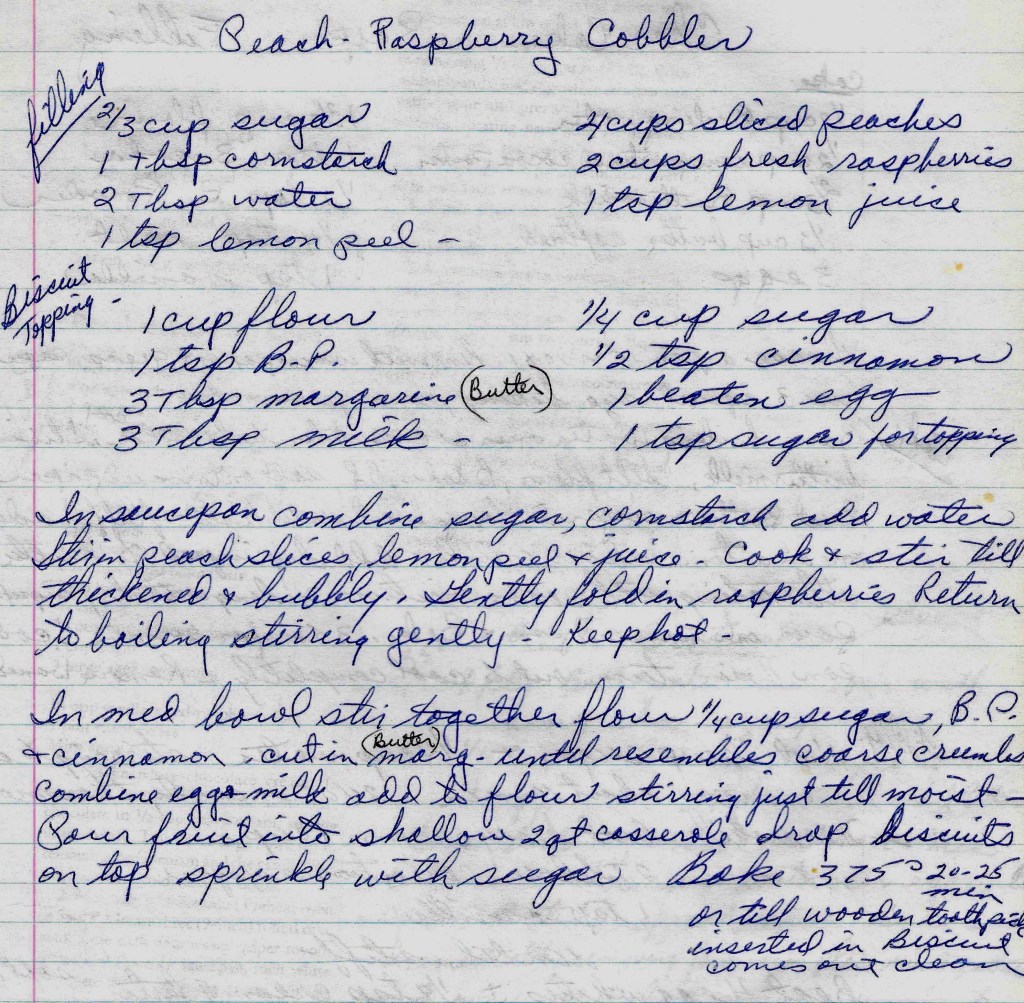 Peach-Raspberry Cobbler
filling
2/3 cup sugar 4 cups sliced peaches
1 Tbsp cornstarch 2 cups fresh raspberries
2 Tbsp water 1 tsp lemon juice
1 tsp lemon peel -
Biscuit
Topping -
1 cup flour 1/4 cup sugar
1 tsp B.P. 1/2 tsp cinnamon
3 Tbsp margarine (Butter) 1 beaten egg
3 Tbsp milk - 1 tsp sugar for topping
In saucepan combine sugar, cornstarch add water
Stir in peach slices, lemon peel & juice. Cook & stir till
thickened & bubbly. Gently fold in raspberries Return
to boiling stirring gently - Keep hot -
In med bowl stir together flour 1/4 cup sugar, B.P.
& cinnamon. cut in (Butter) marg. until resembles coarse crumbs
Combine egg & milk add to flour stirring just till moist -
Pour fruit into shallow 2 qt casserole drop biscuits
on top sprinkle with sugar Bake 375° 20-25
min
or till wooden toothpick
inserted in Biscuit
comes out clean